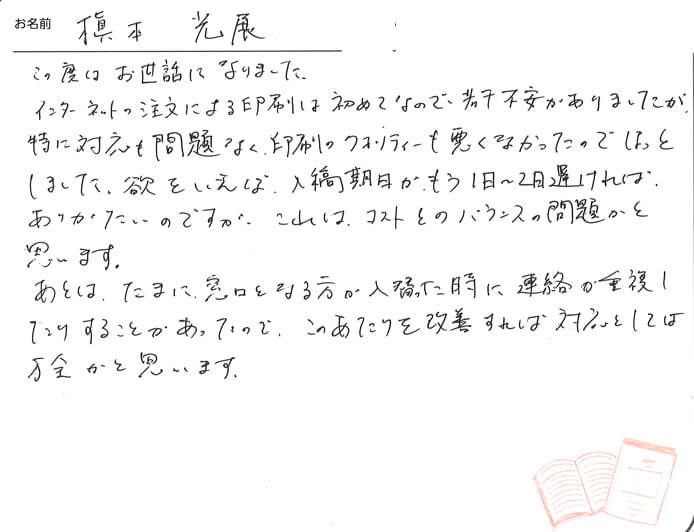 お名前 槇本 光展
この度はお世話になりました。
インターネットの注文による印刷は初めてなので、若干不安がありましたが、
特に対応も問題なく、印刷のクオリティーも悪くなかったのでほっと
しました。欲をいえば、入稿期日が、もう1日〜2日遅ければ、
ありがたいのですが、これは、コストとのバランスの問題かと
思います。
あとは、たまに、窓口となる方が入った時に、連絡が重複し
たりすることがあったので、このあたりを改善すれば対応としては
万全かと思います。